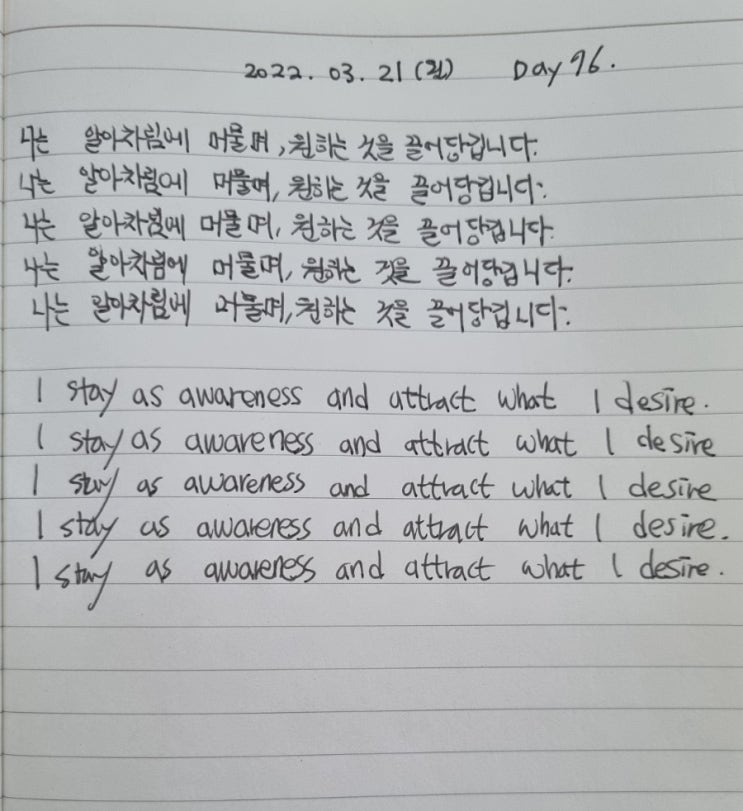 2022. 03. 21 (월) Day 96.
나는 알아차림에 머물며, 원하는 것을 끌어당깁니다.
나는 알아차림에 머물며, 원하는 것을 끌어당깁니다.
나는 알아차림에 머물며, 원하는 것을 끌어당깁니다.
나는 알아차림에 머물며, 원하는 것을 끌어당깁니다.
나는 알아차림에 머물며, 원하는 것을 끌어당깁니다.
I stay as awareness and attract what I desire.
I stay as awareness and attract what I desire
I stay as awareness and attract what I desire
I stay as awareness and attract what I desire.
I stay as awareness and attract what I desire.